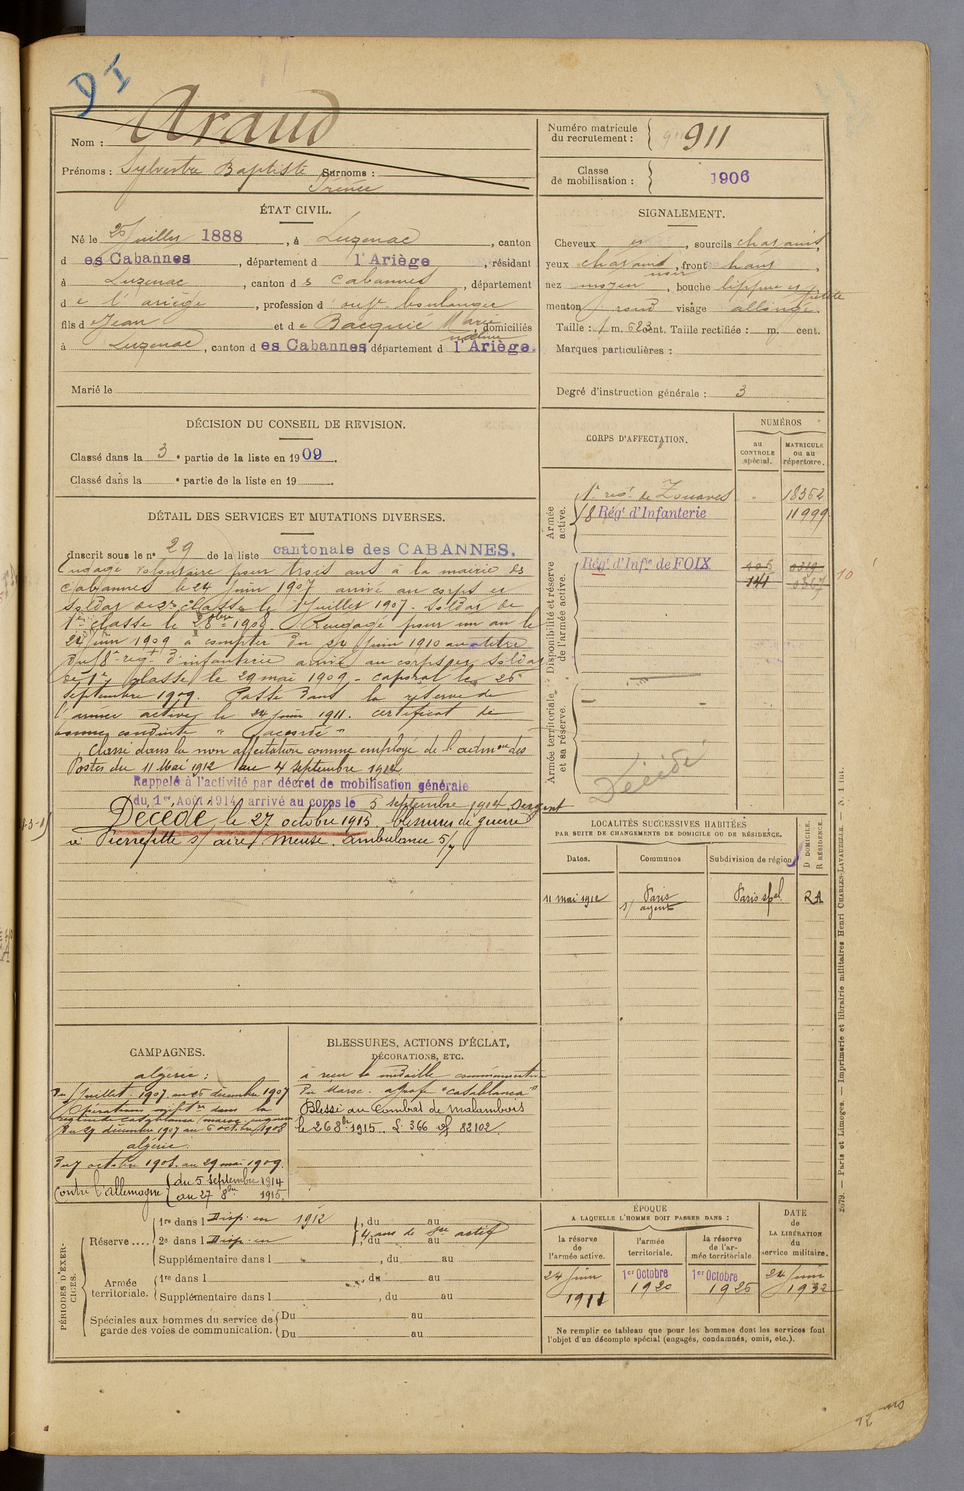 DI
Nom : Araud
Prénoms : Sylvestre Baptiste Surnoms :
Irénée
Numéro matricule
du recrutement : 911
Classe
de mobilisation : 1906
ÉTAT CIVIL.
Né le Juillet 1888, à Luzenac, canton
d es Cabannes, département d l'Ariège, résidant
à Luzenac, canton d s Cabannes, département
d e l'ariège, profession d boulanger
fils d Jean et d e Bacquié Marie
, domiciliés
à Luzenac, canton d es Cabannes département d l'Ariège.
Marié le
SIGNALEMENT.
Cheveux, sourcils chatains,
yeux chatains, front haut,
noir
nez moyen, bouche lippue et
menton rond visage allongé.
Taille : 1 m. 623 cent. Taille rectifiée : m. cent.
Marques particulières :
Degré d'instruction générale : 3
DÉCISION DU CONSEIL DE REVISION.
Classé dans la 3e partie de la liste en 1909.
Classé dans la e partie de la liste en 19 .
DÉTAIL DES SERVICES ET MUTATIONS DIVERSES.
Inscrit sous le no 29 de la liste cantonale des CABANNES.
Engagé volontaire pour trois ans à la mairie des
Cabannes le 24 Juin 1907 arrivé au corps et
soldat de 2e classe le 1er Juillet 1907. Soldat de
1re classe le 1908. Rengagé pour un an le
24 Juin 1909 à compter du 24 Juin 1910 au titre
du 18e régt d'infanterie arrivé au corps et soldat
de 1re classe le 29 mai 1909 - caporal le 25
Septembre 1909. Passé dans la réserve de
l'armée active le 24 Juin 1911. certificat de
bonne conduite " accordé "
Classé dans la non affectation comme employé de l'admon des
Postes du 11 Mai 1912 au 4 septembre 1914
Rappelé à l'activité par décret de mobilisation générale
du 1er Août 1914, arrivé au corps le 5 septembre 1914 Sergent
Décédé le 27 octobre 1915 blessures de guerre
à Pierrefitte s/ aire Meuse. ambulance 5/
CORPS D'AFFECTATION.
NUMÉROS
au
CONTROLE
spécial.
MATRICULE
ou au
répertoire.
Armée
active.
1er régt de Zouaves 18352
18 Régt d'Infanterie 11999
Disponibilité et réserve
de l'armée active.
Régt d'Infie de FOIX
141
10
Armée territoriale
et sa réserve.
Décédé
LOCALITÉS SUCCESSIVES HABITÉES
PAR SUITE DE CHANGEMENTS DE DOMICILE OU DE RÉSIDENCE.
Dates. Communes Subdivision de région
D DOMICILE.
R RÉSIDENCE.
11 mai 1912 Paris Paris spal RA
s/ agent
CAMPAGNES.
algérie :
Du 1 Juillet 1907 au 25 décembre 1907
Opérations milit res dans la
région de Casablanca (maroc
Du 27 décembre 1907 au 6 octobre 1908
algérie.
Du 7 octobre 1908 au 29 mai 1909.
Contre l'allemagne du 5 Septembre 1914
au 27 8bre 1915.
BLESSURES, ACTIONS D'ÉCLAT,
DÉCORATIONS, ETC.
à reçu la médaille commémorative
du Maroc - agrafe "Casablanca"
Blessé au Combat de Malambois
le 26 8bre 1915. 82102.
PÉRIODES D'EXERCICES.
Réserve ....
1re dans l Disp. en 1912, du au
2e dans l Disp. en, du au
4 ans de sce actif
Supplémentaire dans l, du au
Armée
territoriale.
1re dans l, du au
Supplémentaire dans l, du au
Spéciales aux hommes du service de
garde des voies de communication.
Du au
Du au
ÉPOQUE
A LAQUELLE L'HOMME DOIT PASSER DANS :
la réserve
de
l'armée active.
l'armée
territoriale.
la réserve
de l'ar-
mée territoriale.
DATE
de
LA LIBÉRATION
du
service militaire.
24 Juin
1911
1er Octobre
1920
1er Octobre
1926
24 Juin
1932
Ne remplir ce tableau que pour les hommes dont les services font
l'objet d'un décompte spécial (engagés, condamnés, omis, etc.).
2679. — Paris et Limoges. — Imprimerie et librairie militaires Henri CHARLES-LAVAUZELLE.